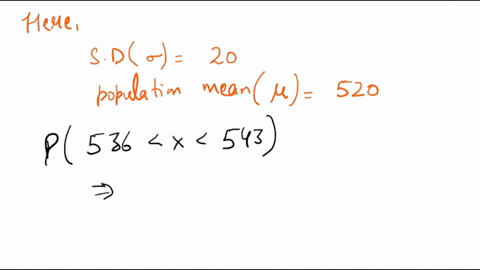 Here,
S.D(σ) = 20
population mean(μ) = 520
P( 536 < x < 543)
⇒